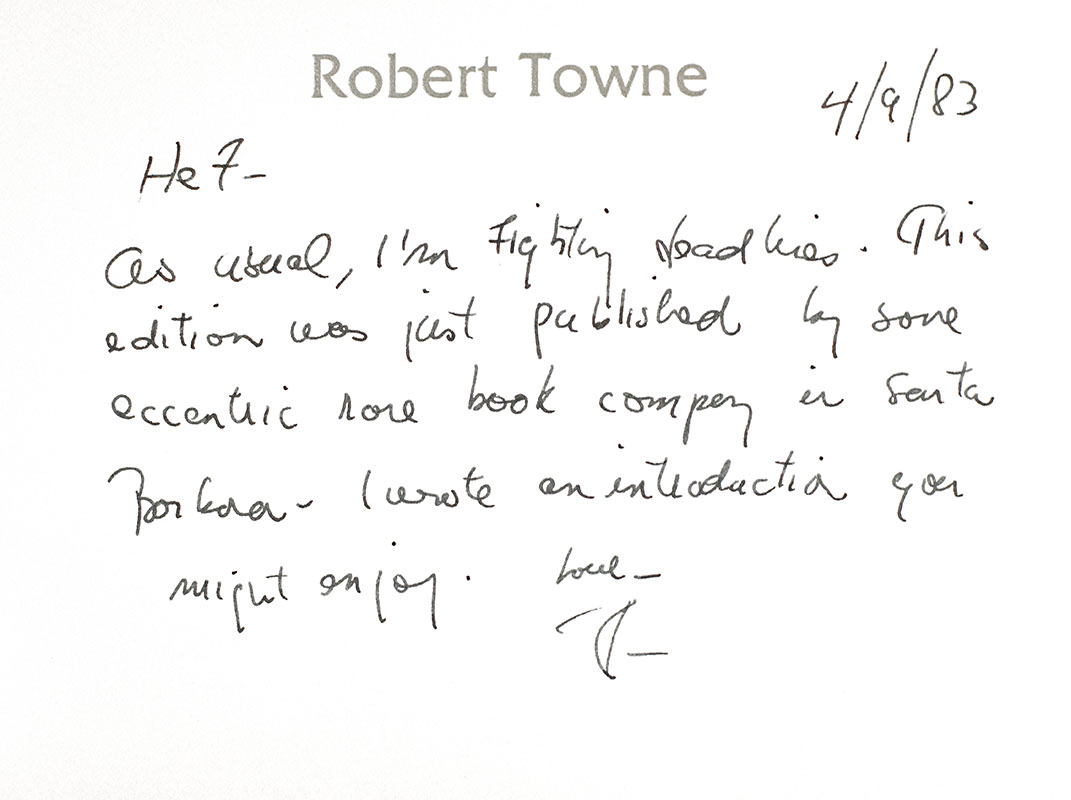 Robert Towne
4/9/83
Hef-
As usual, I'm fighting deadlines. This
edition was just published by some
eccentric rare book company in Santa
Barbara - I wrote an introduction you
might enjoy. Love -